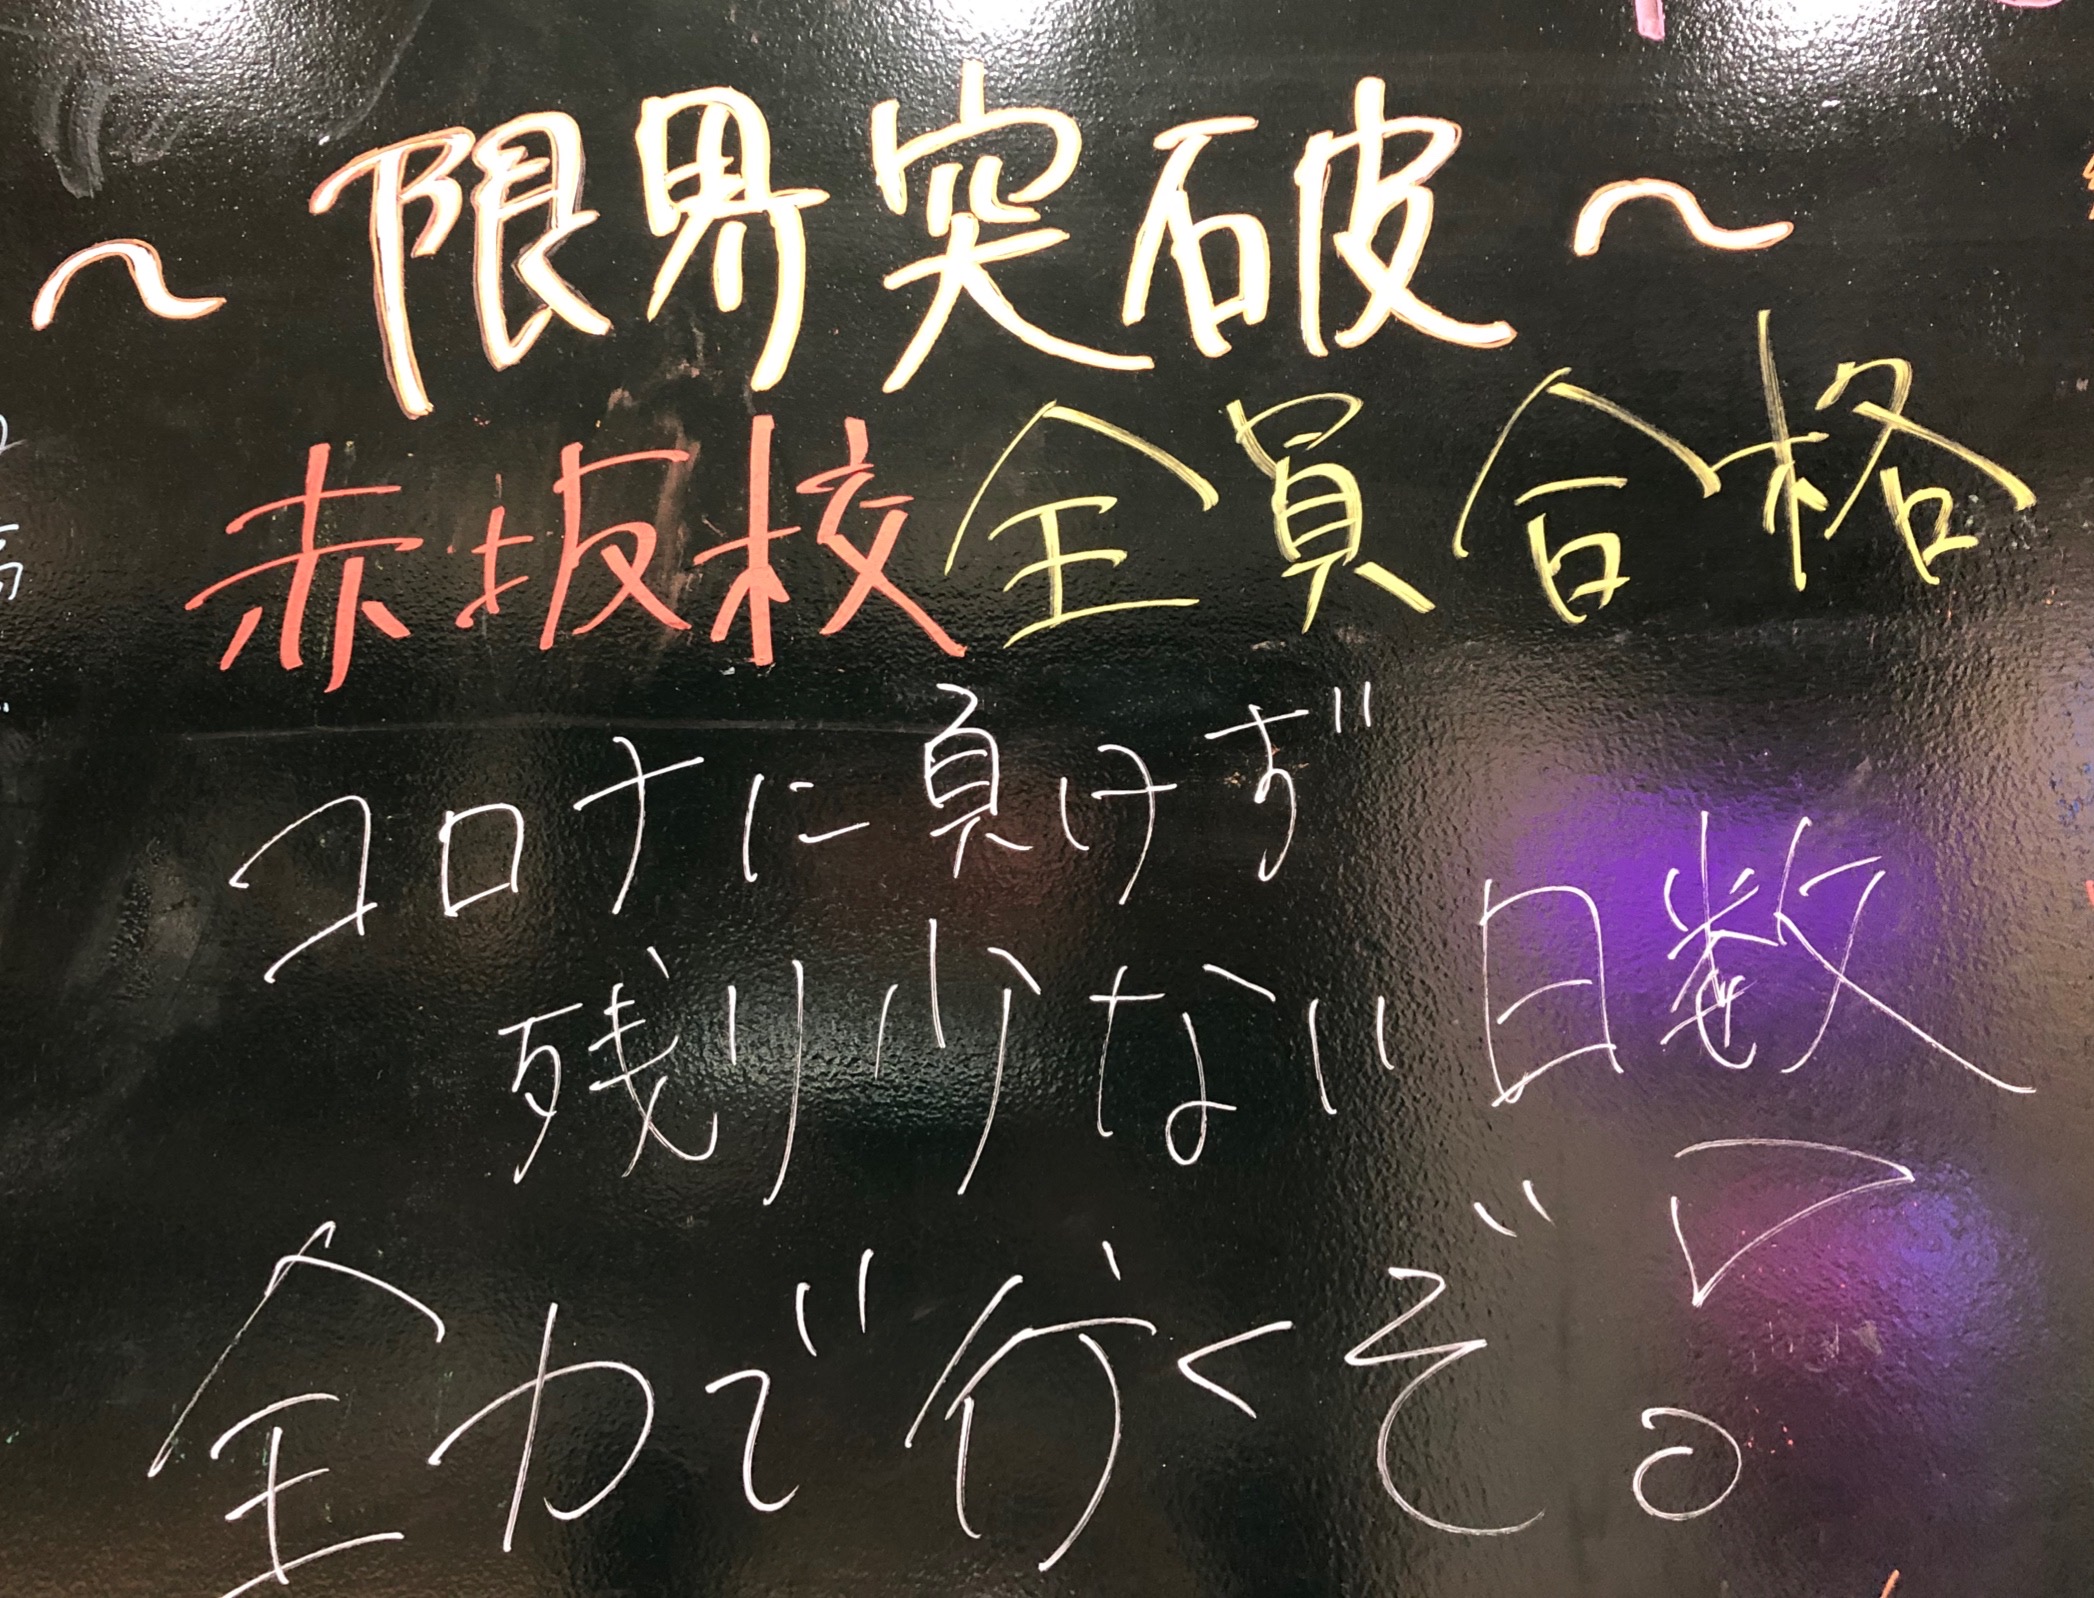 ～限界突破～
赤坂校全員合格
コロナに負けず
残り少ない日数
全力で行くぞ!